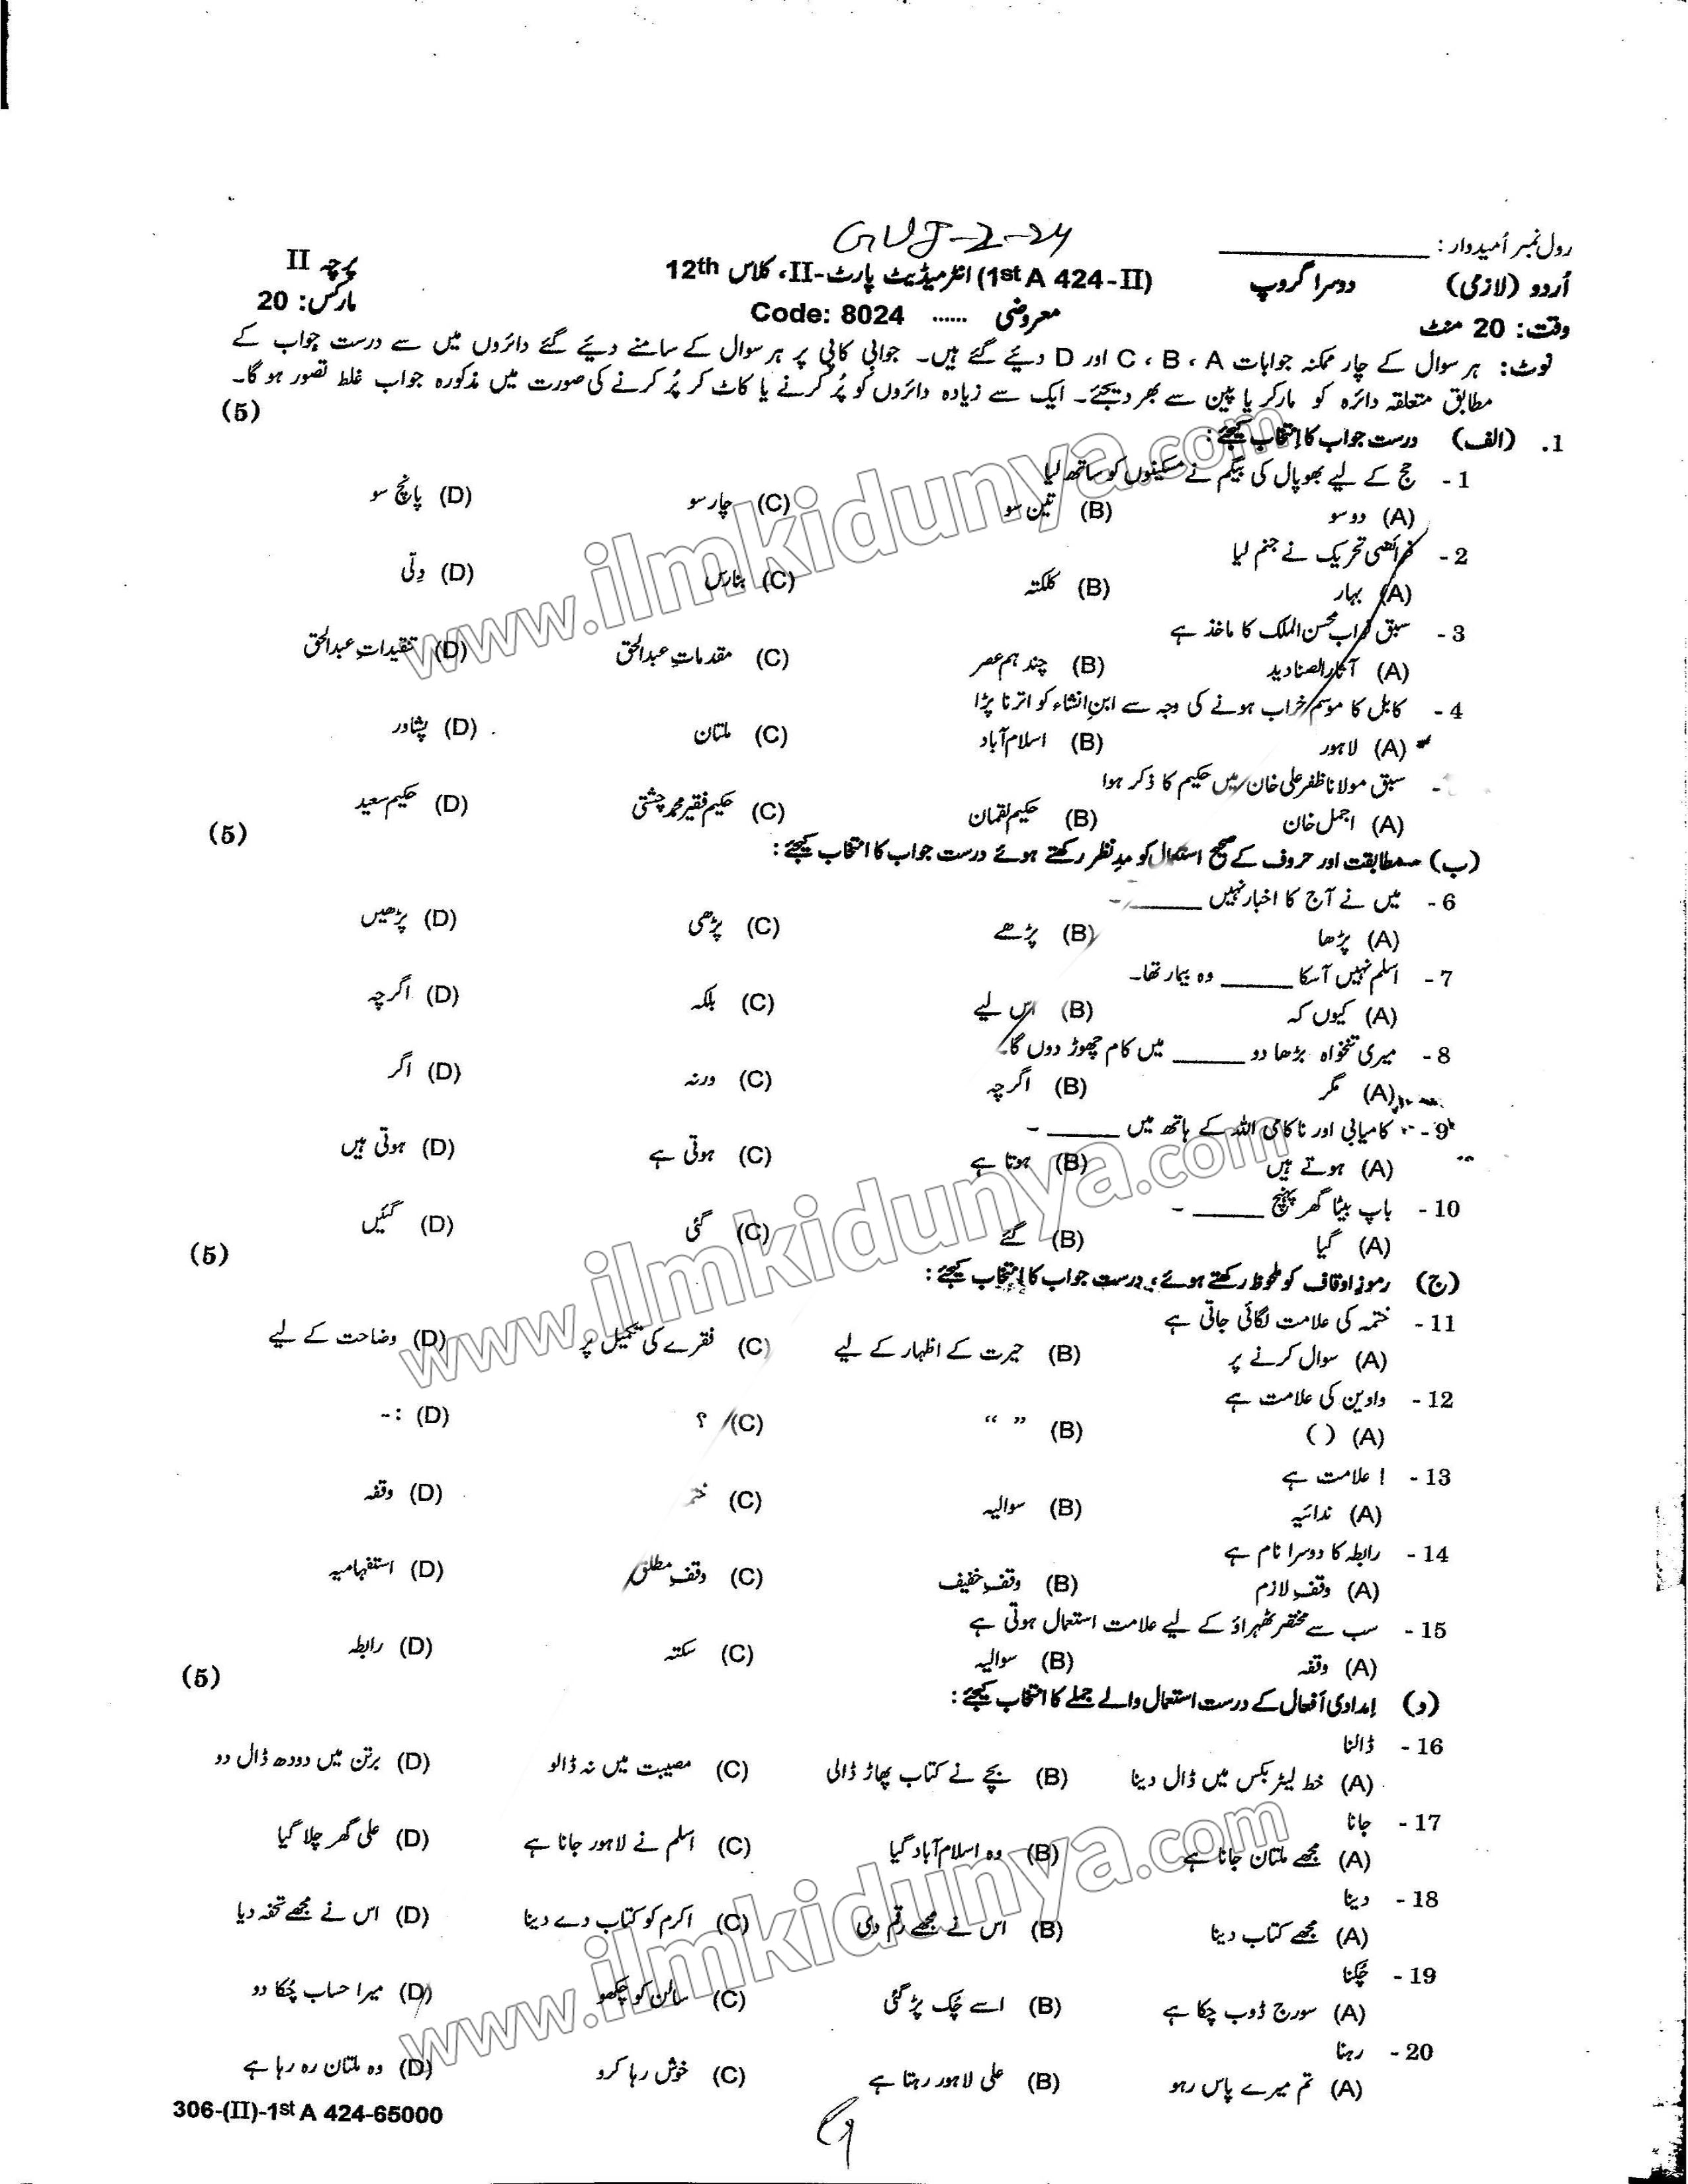 GUJ-2-24
رول نمبر اُمیدوار : ____________
اُردو (لازمی) دوسرا گروپ (1st A 424-II) انٹرمیڈیٹ پارٹ-II، کلاس 12th پرچہ II
وقت: 20 منٹ معروضی ...... Code: 8024 مارکس: 20
نوٹ: ہر سوال کے چار ممکنہ جوابات A ، B ، C اور D دیئے گئے ہیں۔ جوابی کاپی پر ہر سوال کے سامنے دیئے گئے دائروں میں سے درست جواب کے
مطابق متعلقہ دائرہ کو مارکر یا پین سے بھر دیجئے۔ ایک سے زیادہ دائروں کو پُر کرنے یا کاٹ کر پُر کرنے کی صورت میں مذکورہ جواب غلط تصور ہو گا۔
1. (الف) درست جواب کا انتخاب کیجئے: (5)
1 - حج کے لیے بھوپال کی بیگم نے مسکینوں کو ساتھ لیا
(A) دو سو (B) تین سو (C) چار سو (D) پانچ سو
2 - فرائضی تحریک نے جنم لیا
(A) بہار (B) کلکتہ (C) بنارس (D) دِلّی
3 - سبق نواب محسن الملک کا ماخذ ہے
(A) آثار الصنادید (B) چند ہم عصر (C) مقدماتِ عبدالحق (D) تنقیداتِ عبدالحق
4 - کابل کا موسم خراب ہونے کی وجہ سے ابنِ انشاء کو اترنا پڑا
(A) لاہور (B) اسلام آباد (C) ملتان (D) پشاور
- سبق مولانا ظفر علی خان میں حکیم کا ذکر ہوا
(A) اجمل خان (B) حکیم لقمان (C) حکیم فقیر محمد چشتی (D) حکیم سعید
(ب) مطابقت اور حروف کے صحیح استعمال کو مدِنظر رکھتے ہوئے درست جواب کا انتخاب کیجئے: (5)
6 - میں نے آج کا اخبار نہیں ______۔
(A) پڑھا (B) پڑھے (C) پڑھی (D) پڑھیں
7 - اسلم نہیں آسکا ______ وہ بیمار تھا۔
(A) کیوں کہ (B) اس لیے (C) بلکہ (D) اگرچہ
8 - میری تنخواہ بڑھا دو ______ میں کام چھوڑ دوں گا۔
(A) مگر (B) اگرچہ (C) ورنہ (D) اگر
9 - کامیابی اور ناکامی اللہ کے ہاتھ میں ______۔
(A) ہوتے ہیں (B) ہوتا ہے (C) ہوتی ہے (D) ہوتی ہیں
10 - باپ بیٹا گھر پہنچ ______۔
(A) گیا (B) گئے (C) گئی (D) گئیں
(ج) رموزِ اوقاف کو ملحوظ رکھتے ہوئے، درست جواب کا انتخاب کیجئے: (5)
11 - ختمہ کی علامت لگائی جاتی ہے
(A) سوال کرنے پر (B) حیرت کے اظہار کے لیے (C) فقرے کی تکمیل پر (D) وضاحت کے لیے
12 - واوین کی علامت ہے
(A) ( ) (B) “ ” (C) ؟ (D) :-
13 - ! علامت ہے
(A) ندائیہ (B) سوالیہ (C) ختمہ (D) وقفہ
14 - رابطہ کا دوسرا نام ہے
(A) وقفِ لازم (B) وقفِ خفیف (C) وقفِ مطلق (D) استفہامیہ
15 - سب سے مختصر ٹھہراؤ کے لیے علامت استعمال ہوتی ہے
(A) وقفہ (B) سوالیہ (C) سکتہ (D) رابطہ
(د) اِمدادی اَفعال کے درست استعمال والے جملے کا انتخاب کیجئے: (5)
16 - ڈالنا
(A) خط لیٹر بکس میں ڈال دینا (B) بچے نے کتاب پھاڑ ڈالی (C) مصیبت میں نہ ڈالو (D) برتن میں دودھ ڈال دو
17 - جانا
(A) مجھے ملتان جانا ہے (B) وہ اسلام آباد گیا (C) اسلم نے لاہور جانا ہے (D) علی گھر چلا گیا
18 - دینا
(A) مجھے کتاب دینا (B) اس نے مجھے رقم دی (C) اکرم کو کتاب دے دینا (D) اس نے مجھے تحفہ دیا
19 - چُکنا
(A) سورج ڈوب چکا ہے (B) اسے چُک پڑ گئی (C) سالن کو چکھو (D) میرا حساب چُکا دو
20 - رہنا
(A) تم میرے پاس رہو (B) علی لاہور رہتا ہے (C) خوش رہا کرو (D) وہ ملتان رہ رہا ہے
306-(II)-1st A 424-65000
www.ilmkidunya.com
www.ilmkidunya.com
www.ilmkidunya.com